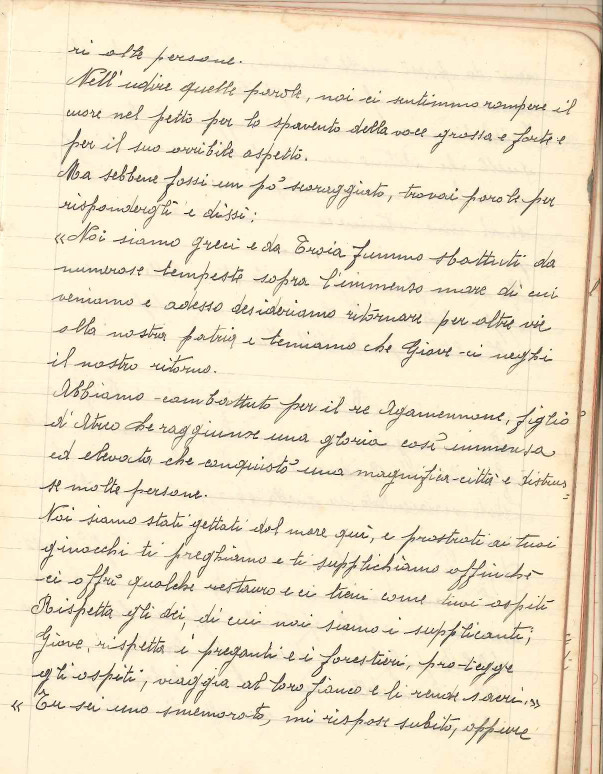 ri alle persone.
Nell'udire quelle parole, noi ci sentimmo rompere il
cuore nel petto per lo spavento della voce grossa e forte e
per il suo orribile aspetto.
Ma sebbene fossi un pò scoraggiato, trovai parole per
rispondergli e dissi:
«Noi siamo greci e da Troia fummo sbattuti da
numerose tempeste sopra l'immenso mare di cui
veniamo e adesso desideriamo ritornare per altre vie
alla nostra patria e temiamo che Giove ci neghi
il nostro ritorno.
Abbiamo combattuto per il re Agamennone, figlio
d'Atreo che raggiunse una gloria così immensa
ed elevata che conquistò una magnifica città e distrus=
se molte persone.
Noi siamo stati gettati dal mare quì, e prostrati ai tuoi
ginocchi ti preghiamo e ti supplichiamo affinchè
ci offrì qualche restauro e ci tieni come tuoi ospiti
Rispetta gli dei, di cui noi siamo i supplicanti;
Giove, rispetta i preganti e i forestieri, protegge
gli ospiti, viaggia al loro fianco e li rende sacri.»
« Tu sei uno smemorato, mi rispose subito, oppure